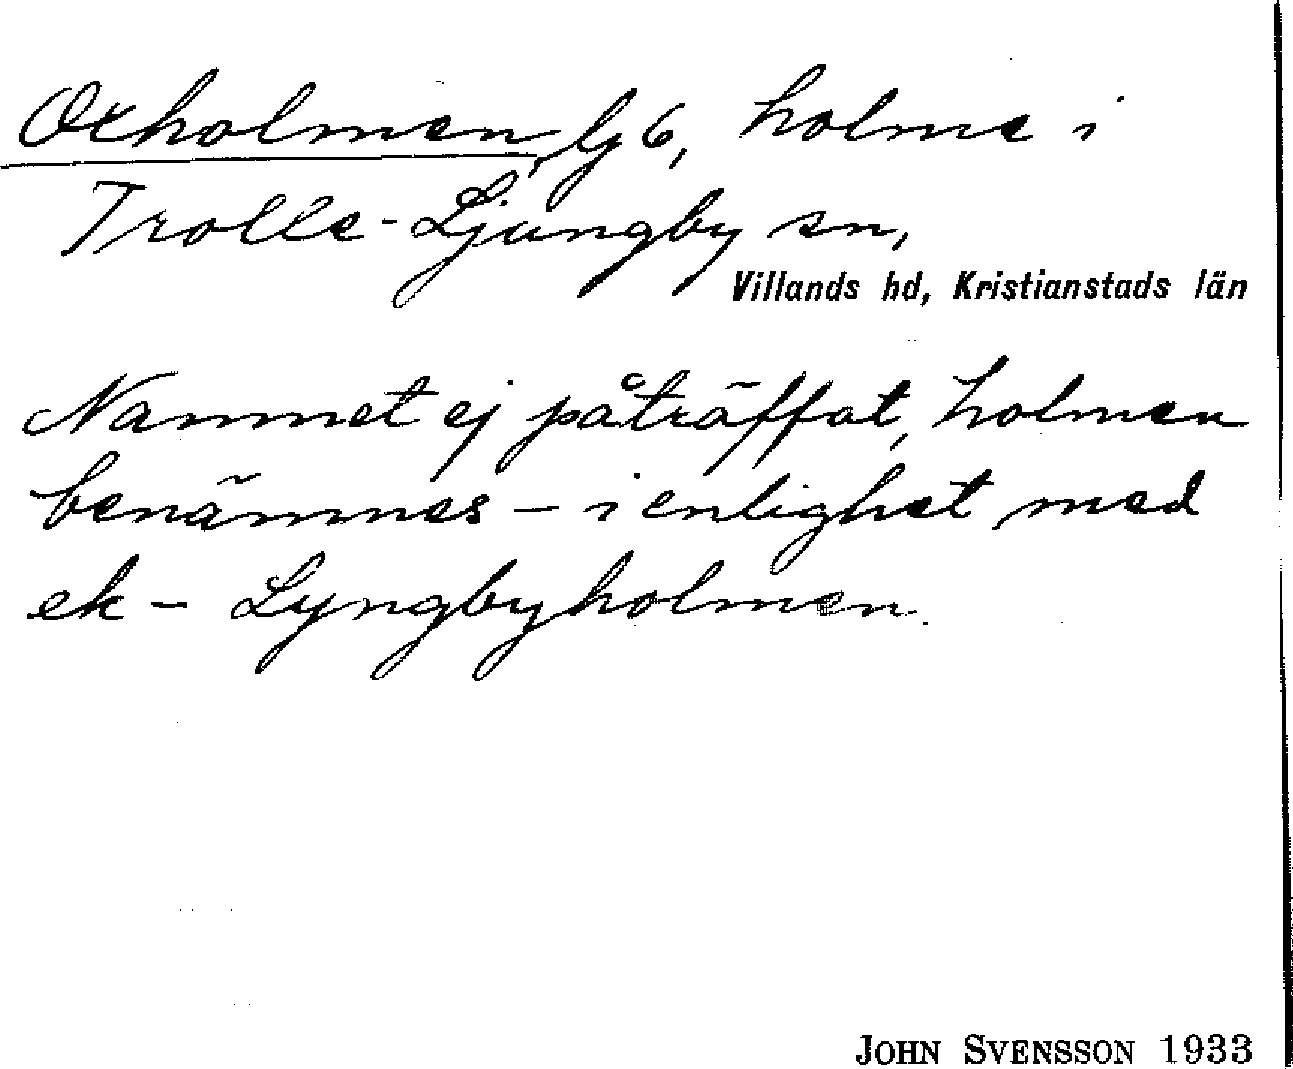 Oxholmen, lj 6, holme i
Trolle-Ljungby sn,
Villands hd, Kristianstads län
Namnet ej påträffat, holmen
benämnes – i enlighet med
ek – Lyngbyholmen.
JOHN SVENSSON 1933